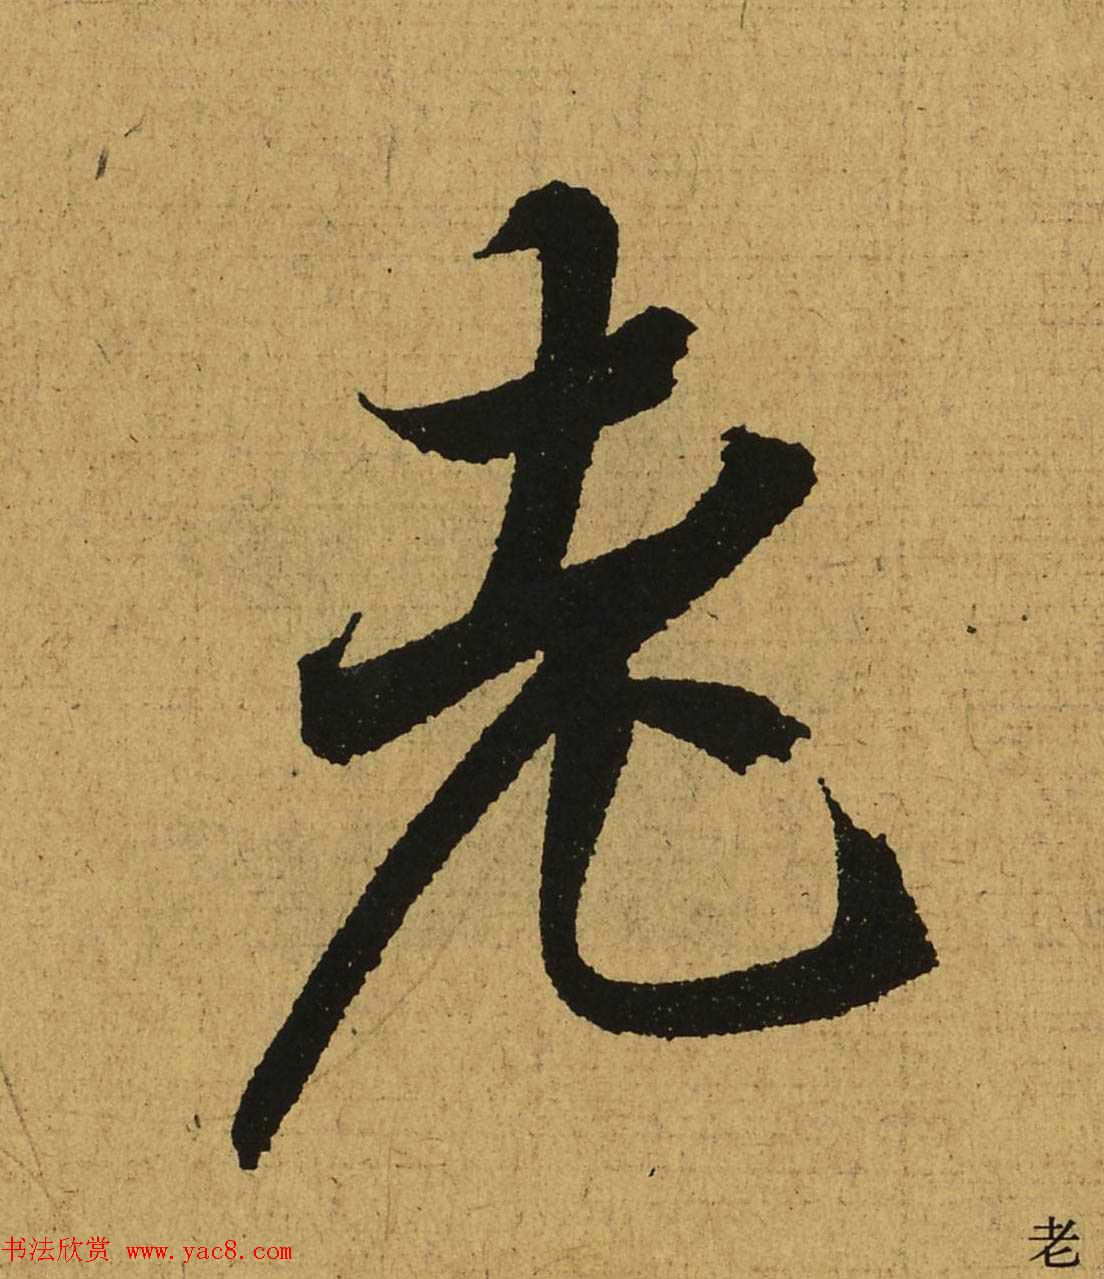 老
书法欣赏 www.yac8.com
老